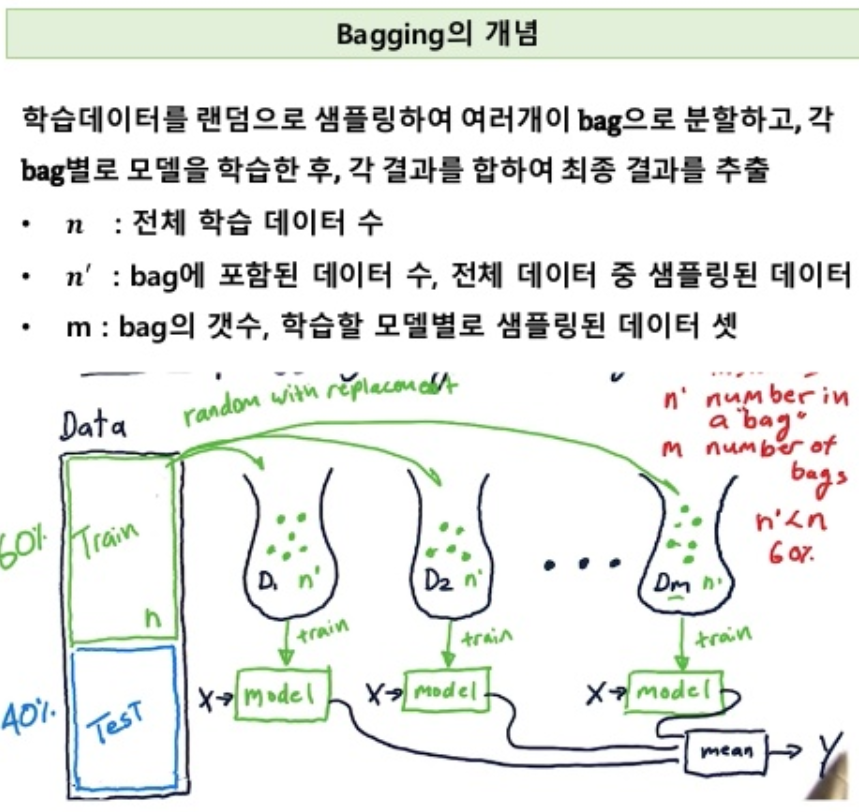 Bagging의 개념
학습데이터를 랜덤으로 샘플링하여 여러개이 bag으로 분할하고, 각
bag별로 모델을 학습한 후, 각 결과를 합하여 최종 결과를 추출
• n : 전체 학습 데이터 수
• n′ : bag에 포함된 데이터 수, 전체 데이터 중 샘플링된 데이터
• m : bag의 갯수, 학습할 모델별로 샘플링된 데이터 셋
random with replacement
n' number in
a "bag"
m number of
bags
n'<n
60%
Data
60%
Train
n
40%
TesT
D₁ n'
D2 n'
• • •
Dm n'
train
train
train
X→ model
X→ model
X→ model
mean → Y